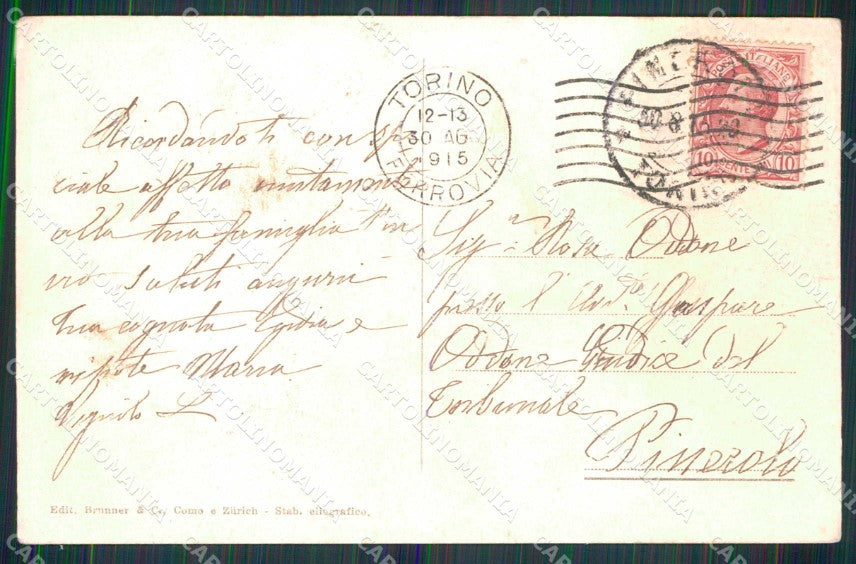 Ricordandoti con spe
ciale affetto unitamente
alla tua famiglia t'in
vio saluti auguri
tua cognata Egidia e
nipote Maria
L
TORINO
12-13
30 AG
1915
FERROVIA
POSTE ITALIANE
10 10
Sig.na Rosa Oddone
presso l'Avv.to Gaspare
Oddone Giudice del
Tribunale
Pinerolo
Edit. Brunner & C., Como e Zürich - Stab. eliografico.
CARTOLINOMANIA